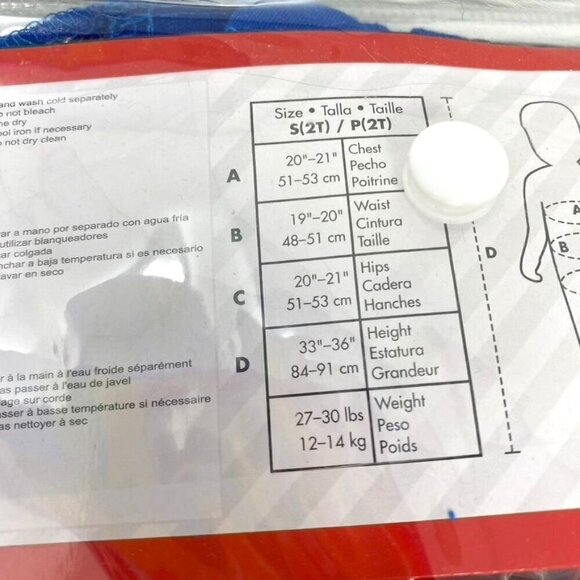 and wash cold separately
not bleach
dry
iron if necessary
not dry clean
a mano por separado con agua fría
utilizar blanqueadores
colgada
a baja temperatura si es necesario
en seco
à la main à l'eau froide séparément
passer à l'eau de javel
sur corde
à basse température si nécessaire
nettoyer à sec
Size • Talla • Taille
S(2T) / P(2T)
A
20"–21"
51–53 cm
Chest
Pecho
Poitrine
B
19"–20"
48–51 cm
Waist
Cintura
Taille
C
20"–21"
51–53 cm
Hips
Cadera
Hanches
D
33"–36"
84–91 cm
Height
Estatura
Grandeur
27–30 lbs
12–14 kg
Weight
Peso
Poids
D
A
B